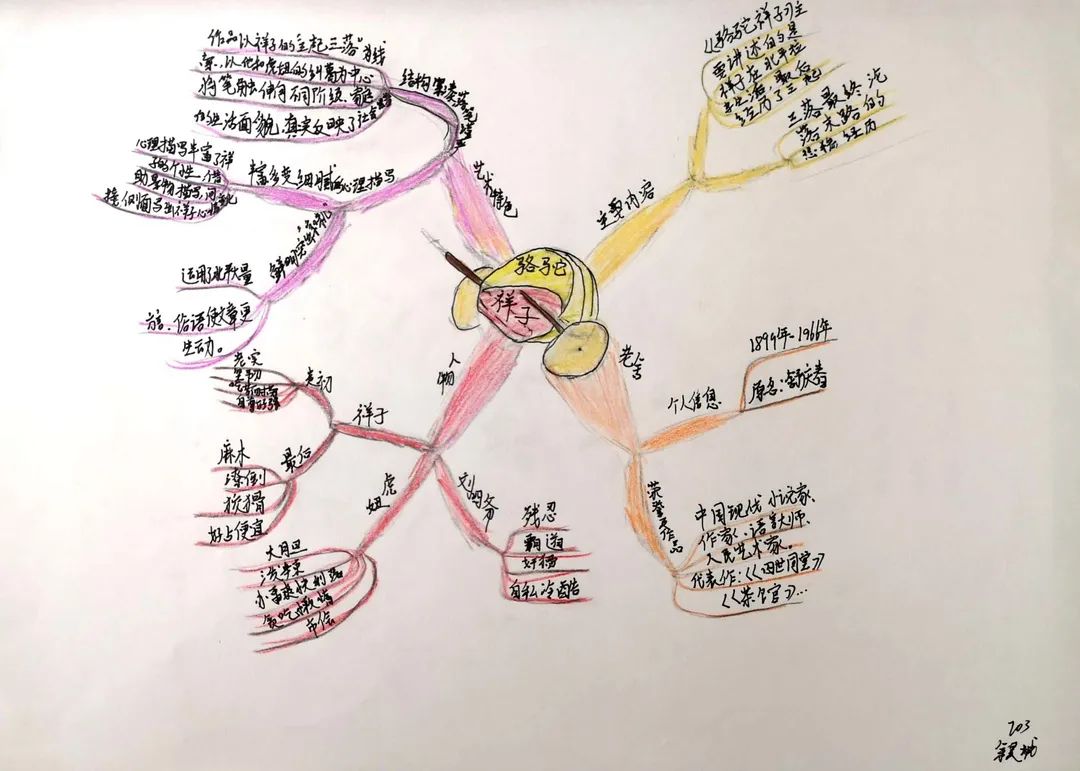 骆驼
祥子
主要内容
《骆驼祥子》主
要讲述的是
祥子在北平拉
车生活最后
经历了三起
三落最终沦
落末路的
悲惨经历
老舍
个人信息
1899年-1966年
原名:舒庆春
荣誉及作品
中国现代小说家、
作家、语言大师、
人民艺术家。
代表作:《四世同堂》
《茶馆》...
人物
祥子
老实
坚韧
最初
最后
麻木
潦倒
狡猾
好占便宜
虎妞
大胆
泼辣
好吃懒惰
市侩
刘四爷
残忍
霸道
奸猾
自私冷酷
艺术特色
结构紧凑
作品以祥子的三起三落为线
索,以他和虎妞的纠葛为中心
将笔触伸向不同阶级、家庭
的生活面貌,真实反映了社会
丰富多变细腻的心理描写
心理描写丰富了祥
子的个性,借
助景物描写,间
接侧面写出祥子心情变化
鲜明突出"京味儿"
运用了北平大量
方言、俗语使文章更
生动。
703